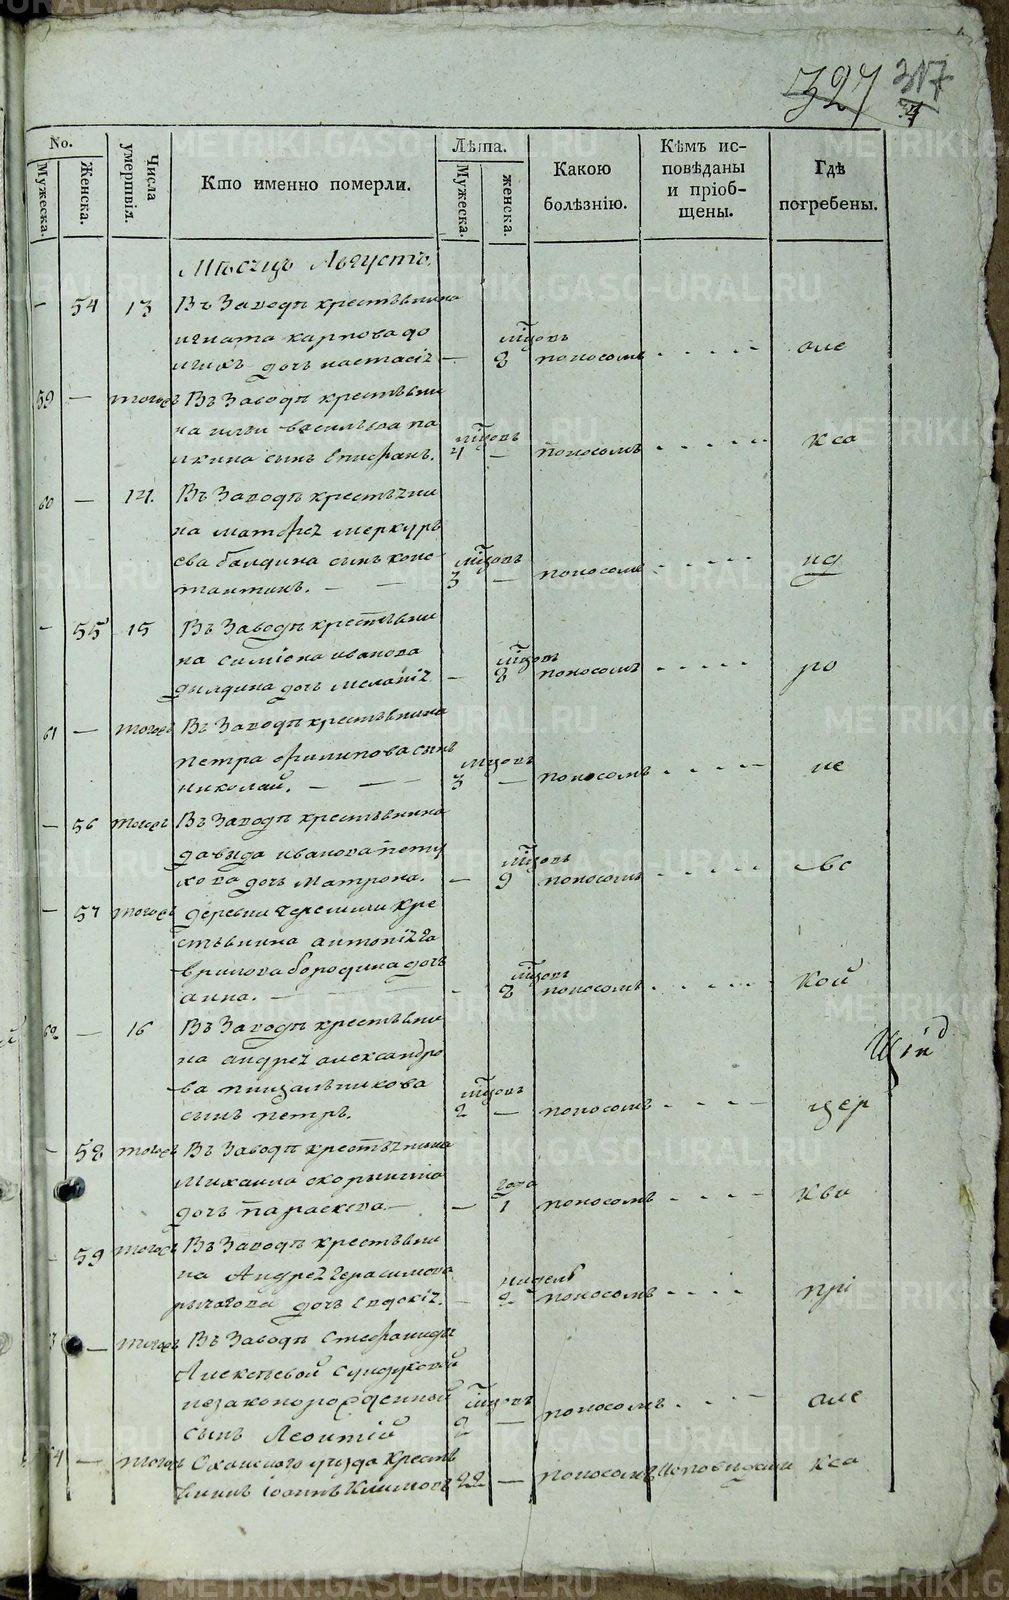 327 317
No.
Мужеска.
Женска.
Числа умерпвія.
Кто именно померли.
Лѣта.
Мужеска.
женска.
Какою болѣзнію.
Кѣмъ ис-
повѣданы
и пріоб-
щены.
Гдѣ
погребены.
Мѣсяцъ Августъ.
54 13 Въ Заводѣ крестьянина
игната карпова до
дочь настасія — 8 поносомъ але
59 — тогожъ Въ Заводѣ крестьяни
на ильи васильева па
лкина сынъ Епифанъ. 4 — поносомъ кса
60 — 14. Въ Заводѣ крестьяни
на матфея меркурь
ева балдина сынъ конс
тантинъ. 3 — поносомъ нд
55 15 Въ Заводѣ крестьяни
на симіона иванова
дилдина дочь меланія — 8 поносомъ ро
61 — тогожъ Въ Заводѣ крестьянина
петра филипова сынъ
николай. 3 — поносомъ не
— 56 тогожъ Въ Заводѣ крестьянина
давыда иванова пету
хова дочь матрона. — 9 поносомъ вс
— 57 тогожъ деревни черемши кре
стьянина антонія га
врилова бородина дочь
анна. — 8 поносомъ кой
62 — 16 Въ Заводѣ крестьяни
на андрея александро
ва пищальникова
сынъ петръ. 2 — поносомъ цер
— 58 тогожъ Въ Заводѣ крестьянина
Михаила скорынина
года
дочь параскева — 1 поносомъ кви
59 тогожъ Въ Заводѣ крестьяни
на Андрея герасимова
недель
рычагова дочь Евдокія. — 2 поносомъ прі
— тогожъ Въ Заводѣ Стефаниды
Алексѣевой Сундуковой
незаконорожденный
сынъ Леонтій 2 — поносомъ але
64 — тогожъ Оханского уѣзда кресть
янинъ іоаннъ Климовъ 22 — поносомъ Исповеданъ кса
METRIKI.GASO-URAL.RU